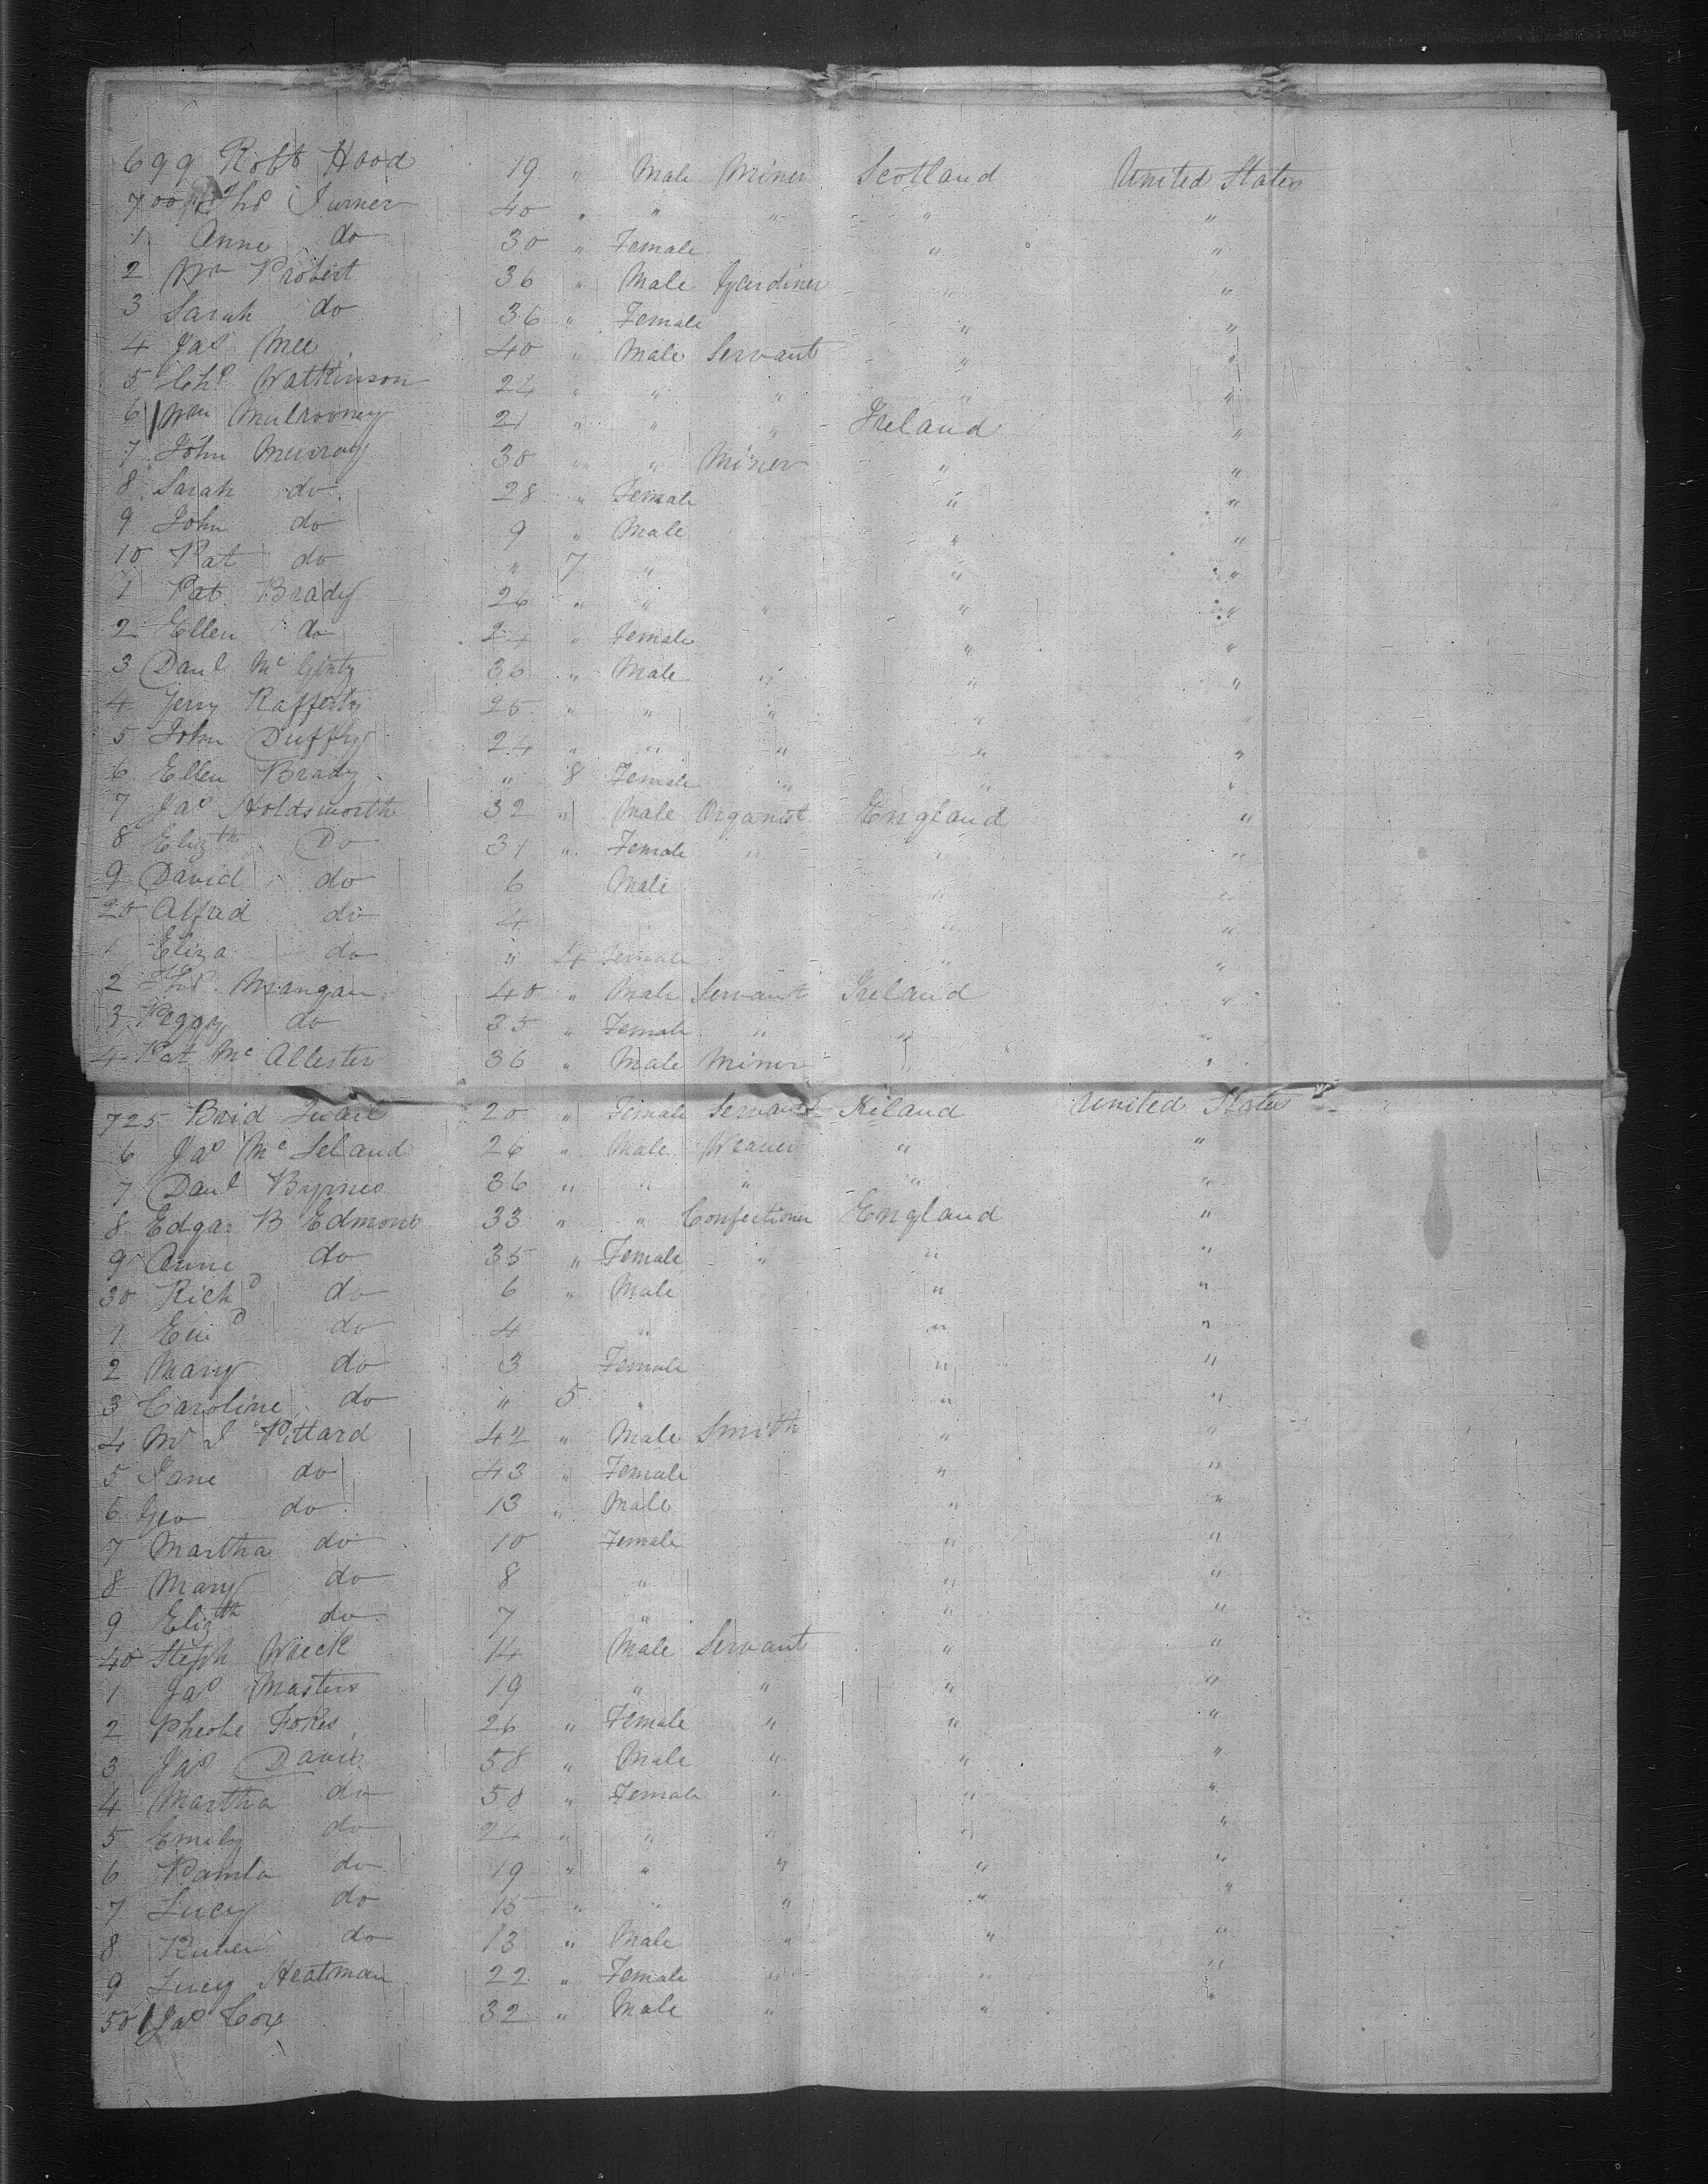 699 Robt Hood 19 " Male Miner Scotland United States
700 Thos Turner 40 " " " " "
1 Anne do 30 " Female " "
2 Wm Probert 36 " Male Gardiner " "
3 Sarah do 36 " Female " "
4 Jas Mee 40 " Male Servant " "
5 Chs Watkinson 24 " " " " "
6 Wm Mulrooney 21 " " " Ireland "
7 John Murray 30 " " Miner " "
8 Sarah do 28 " Female " "
9 John do 9 " Male " "
10 Pat do " 7 " " "
1 Pat Brady 26 " " " " "
2 Ellen do 24 " Female " "
3 Danl Mc Ginty 36 " Male " " "
4 Jerry Rafferty 25 " " " " "
5 John Duffy 24 " " " " "
6 Ellen Brady " 8 Female " " "
7 Jas Holdsworth 32 " Male Organist England "
8 Elizth Do 31 " Female " " "
9 David do 6 Male " "
20 Alfred do 4 " "
1 Eliza do " 4 Female " "
2 Thos Mangan 40 " Male Servant Ireland "
3 Peggy do 35 " Female " " "
4 Pat Mc Allester 36 " Male Miner " "
725 Brid 20 " Female Servant Ireland United States
6 Jas Mc Leland 26 " Male Weaver " "
7 Danl Byrnes 36 " " " " "
8 Edgar B Edmons 33 " " Confectioner England "
9 Anne do 35 " Female " " "
30 Richd do 6 " Male " "
1 do 4 " " "
2 Mary do 3 Female " "
3 Caroline do " 5 " " "
4 Pittard 42 " Male Smith " "
5 Jane do 43 " Female " "
6 Geo do 13 " Male " "
7 Martha do 10 Female " "
8 Mary do 8 " " "
9 Elizth do 7 " " "
40 Steph 14 Male Servant " "
1 Jas Masters 19 " " " "
2 Pheobe Fokes 26 " Female " " "
3 Jas Davis 58 " Male " " "
4 Martha do 58 " Female " " "
5 Emily do 24 " " " " "
6 Pamla do 19 " " " " "
7 Lucy do 15 " " " " "
8 Ruben do 13 " Male " " "
9 Lucy Heatman 22 " Female " " "
50 Jas Cox 32 " Male " " "